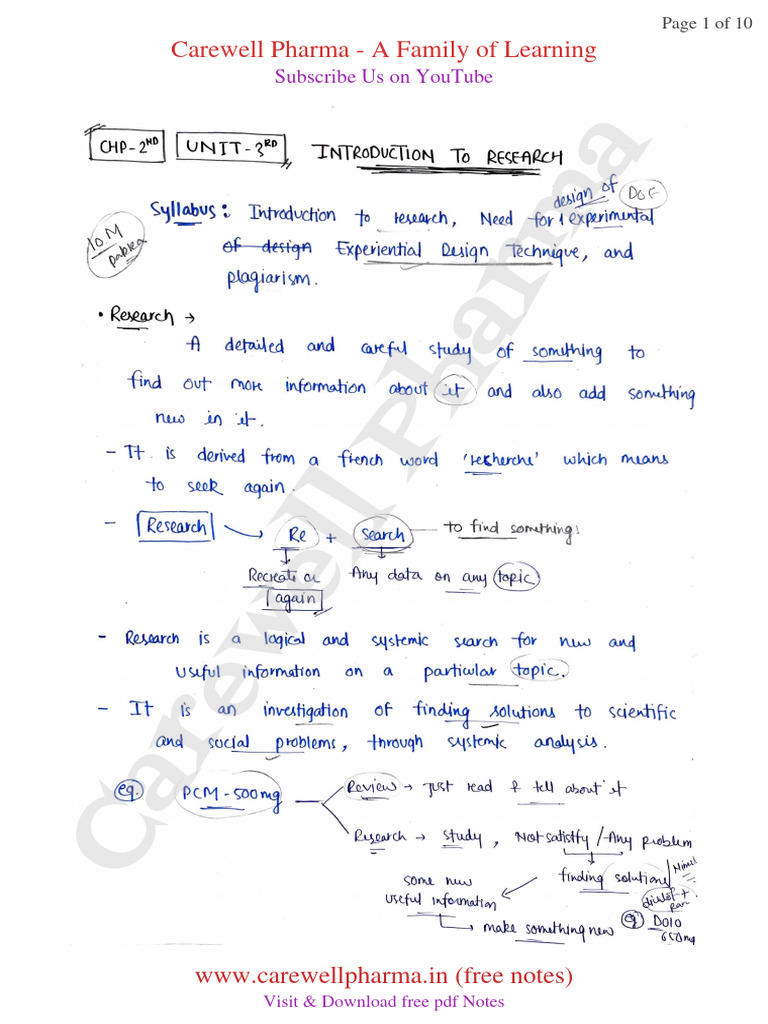 Page 1 of 10
Carewell Pharma - A Family of Learning
Subscribe Us on YouTube
CHP-2ND UNIT-3RD INTRODUCTION TO RESEARCH
design of DOE
Syllabus: Introduction to research, Need for experimental
10M
of design Experiential Design Technique, and
plagiarism.
• Research →
A detailed and careful study of something to
find out more information about it and also add something
new in it.
- It is derived from a french word 'recherche' which means
to seek again.
- Research → Re + Search — to find something
Recreate or Any data on any topic
again
- Research is a logical and systemic search for new and
useful information on a particular topic.
- It is an investigation of finding solutions to scientific
and social problems, through systemic analysis.
eg. PCM-500mg Review → Just read & tell about it
Research → study, Not satisfy/Any problem
finding solutions/
some new
useful information
→ make something new eg Dolo
650mg
Carewell Pharma
www.carewellpharma.in (free notes)
Visit & Download free pdf Notes